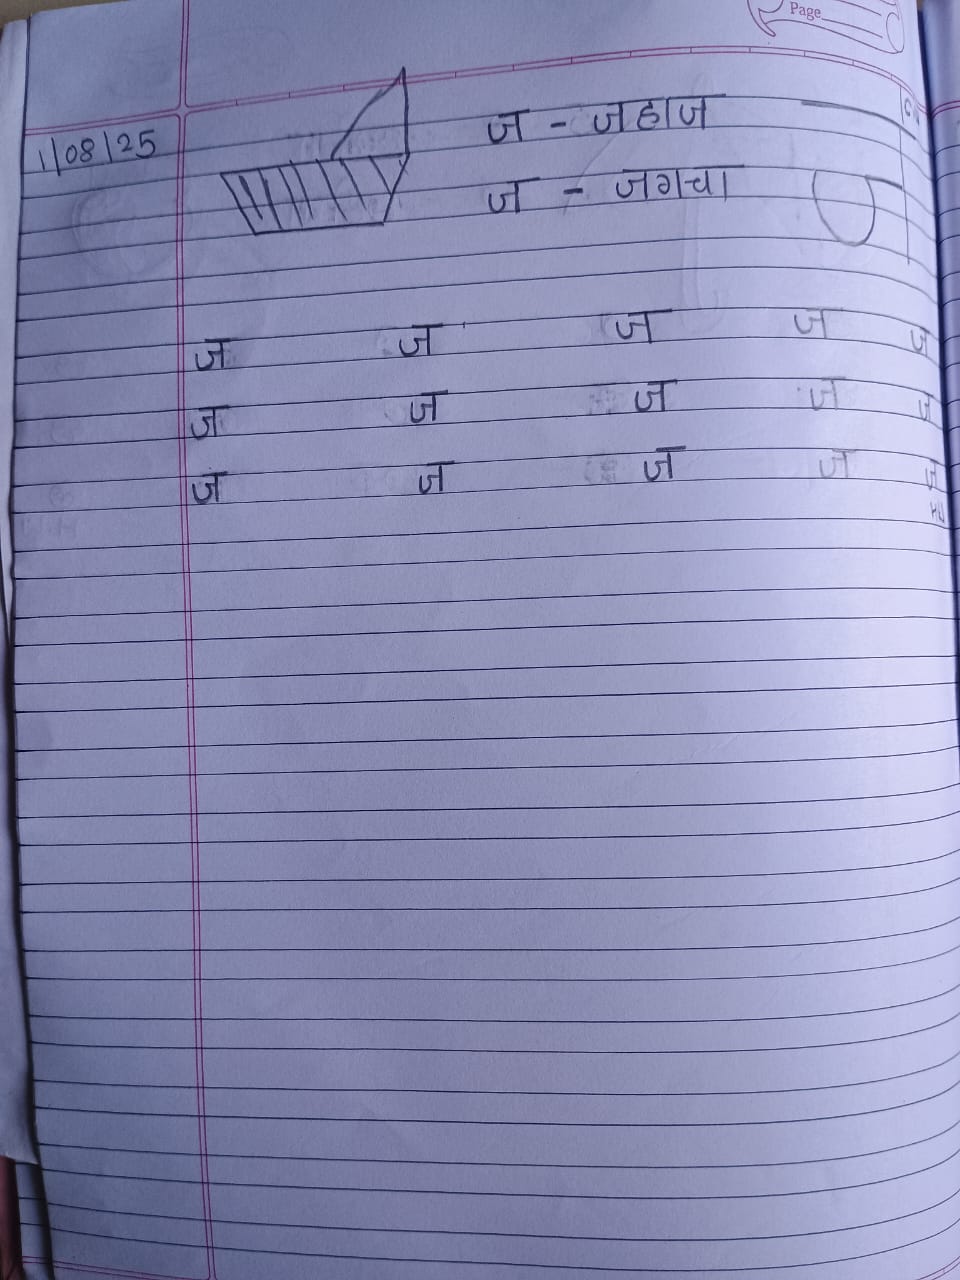 Page
1/08/25
ज - जहाज
ज - जगचा
ज ज ज ज ज
ज ज ज ज ज
ज ज ज ज ज